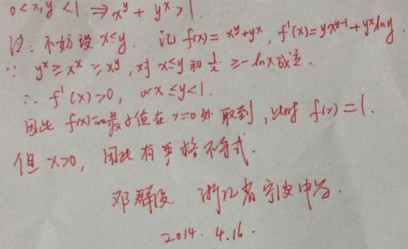 0<x,y<1 ⇒ x^y + y^x > 1.
证: 不妨设 x≤y. 记 f(x)= x^y+y^x, f'(x)=yx^{y-1}+y^x ln y.
∵ y^x ≥ x^x ≥ x^y, 对 x≤y 和 1/x ≥ -ln x 成立.
∴ f'(x)>0, 0<x≤y<1.
因此 f(x)的最小值在 x=0 处取到, 此时 f(x)=1.
但 x>0, 因此有严格不等式.
邓 浙江省宁波中学.
2014. 4.16.